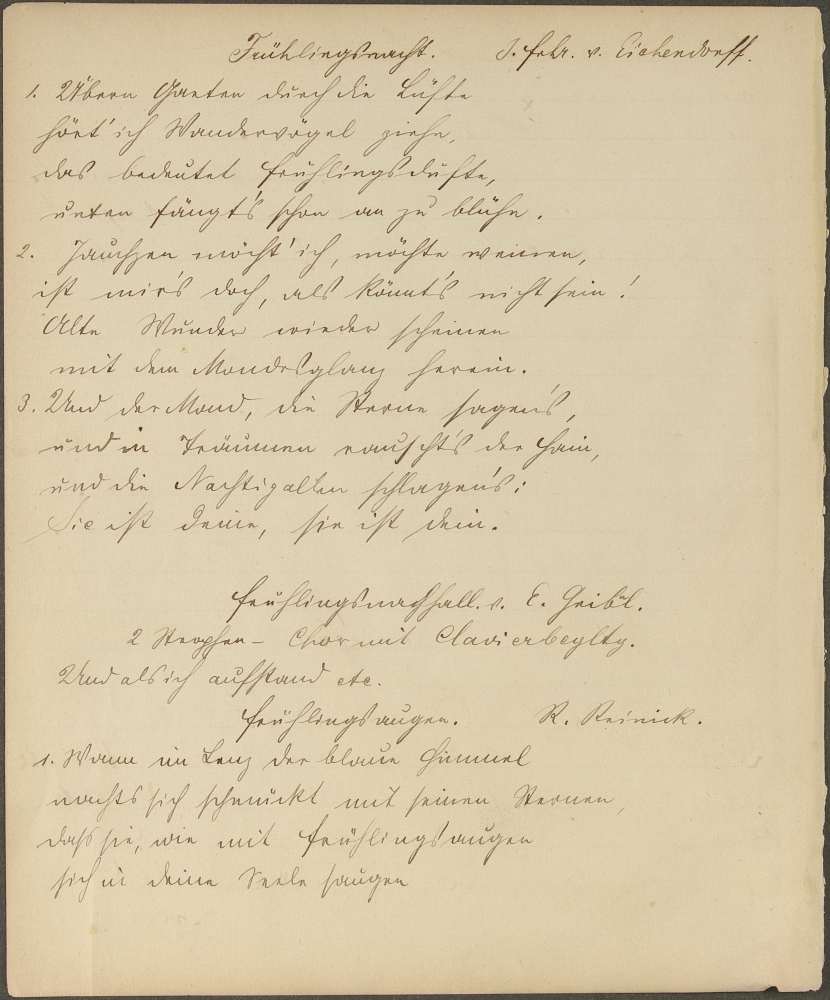 Frühlingsnacht. J. Frhr. v. Eichendorff.
1. Übern Garten durch die Lüfte
hört' ich Wandervögel ziehn,
das bedeutet Frühlingsdüfte,
unten fängt's schon an zu blühn.
2. Jauchzen möcht' ich, möchte weinen,
ist mir's doch, als könnt's nicht sein!
Alte Wunder wieder scheinen
mit dem Mondesglanz herein.
3. Und der Mond, die Sterne sagen's,
und in Träumen rauscht's der Hain,
und die Nachtigallen schlagen's:
Sie ist deine, sie ist dein.
Frühlingsnachhall. v. E. Geibel.
2 Strophen – Chor mit Clavierbegltg.
Und als ich aufstand etc.
Frühlingsaugen. R. Reinick.
1. Wenn im Lenz der blaue Himmel
nachts sich schmückt mit seinen Sternen,
dass sie, wie mit Frühlingsaugen
sich in deine Seele saugen